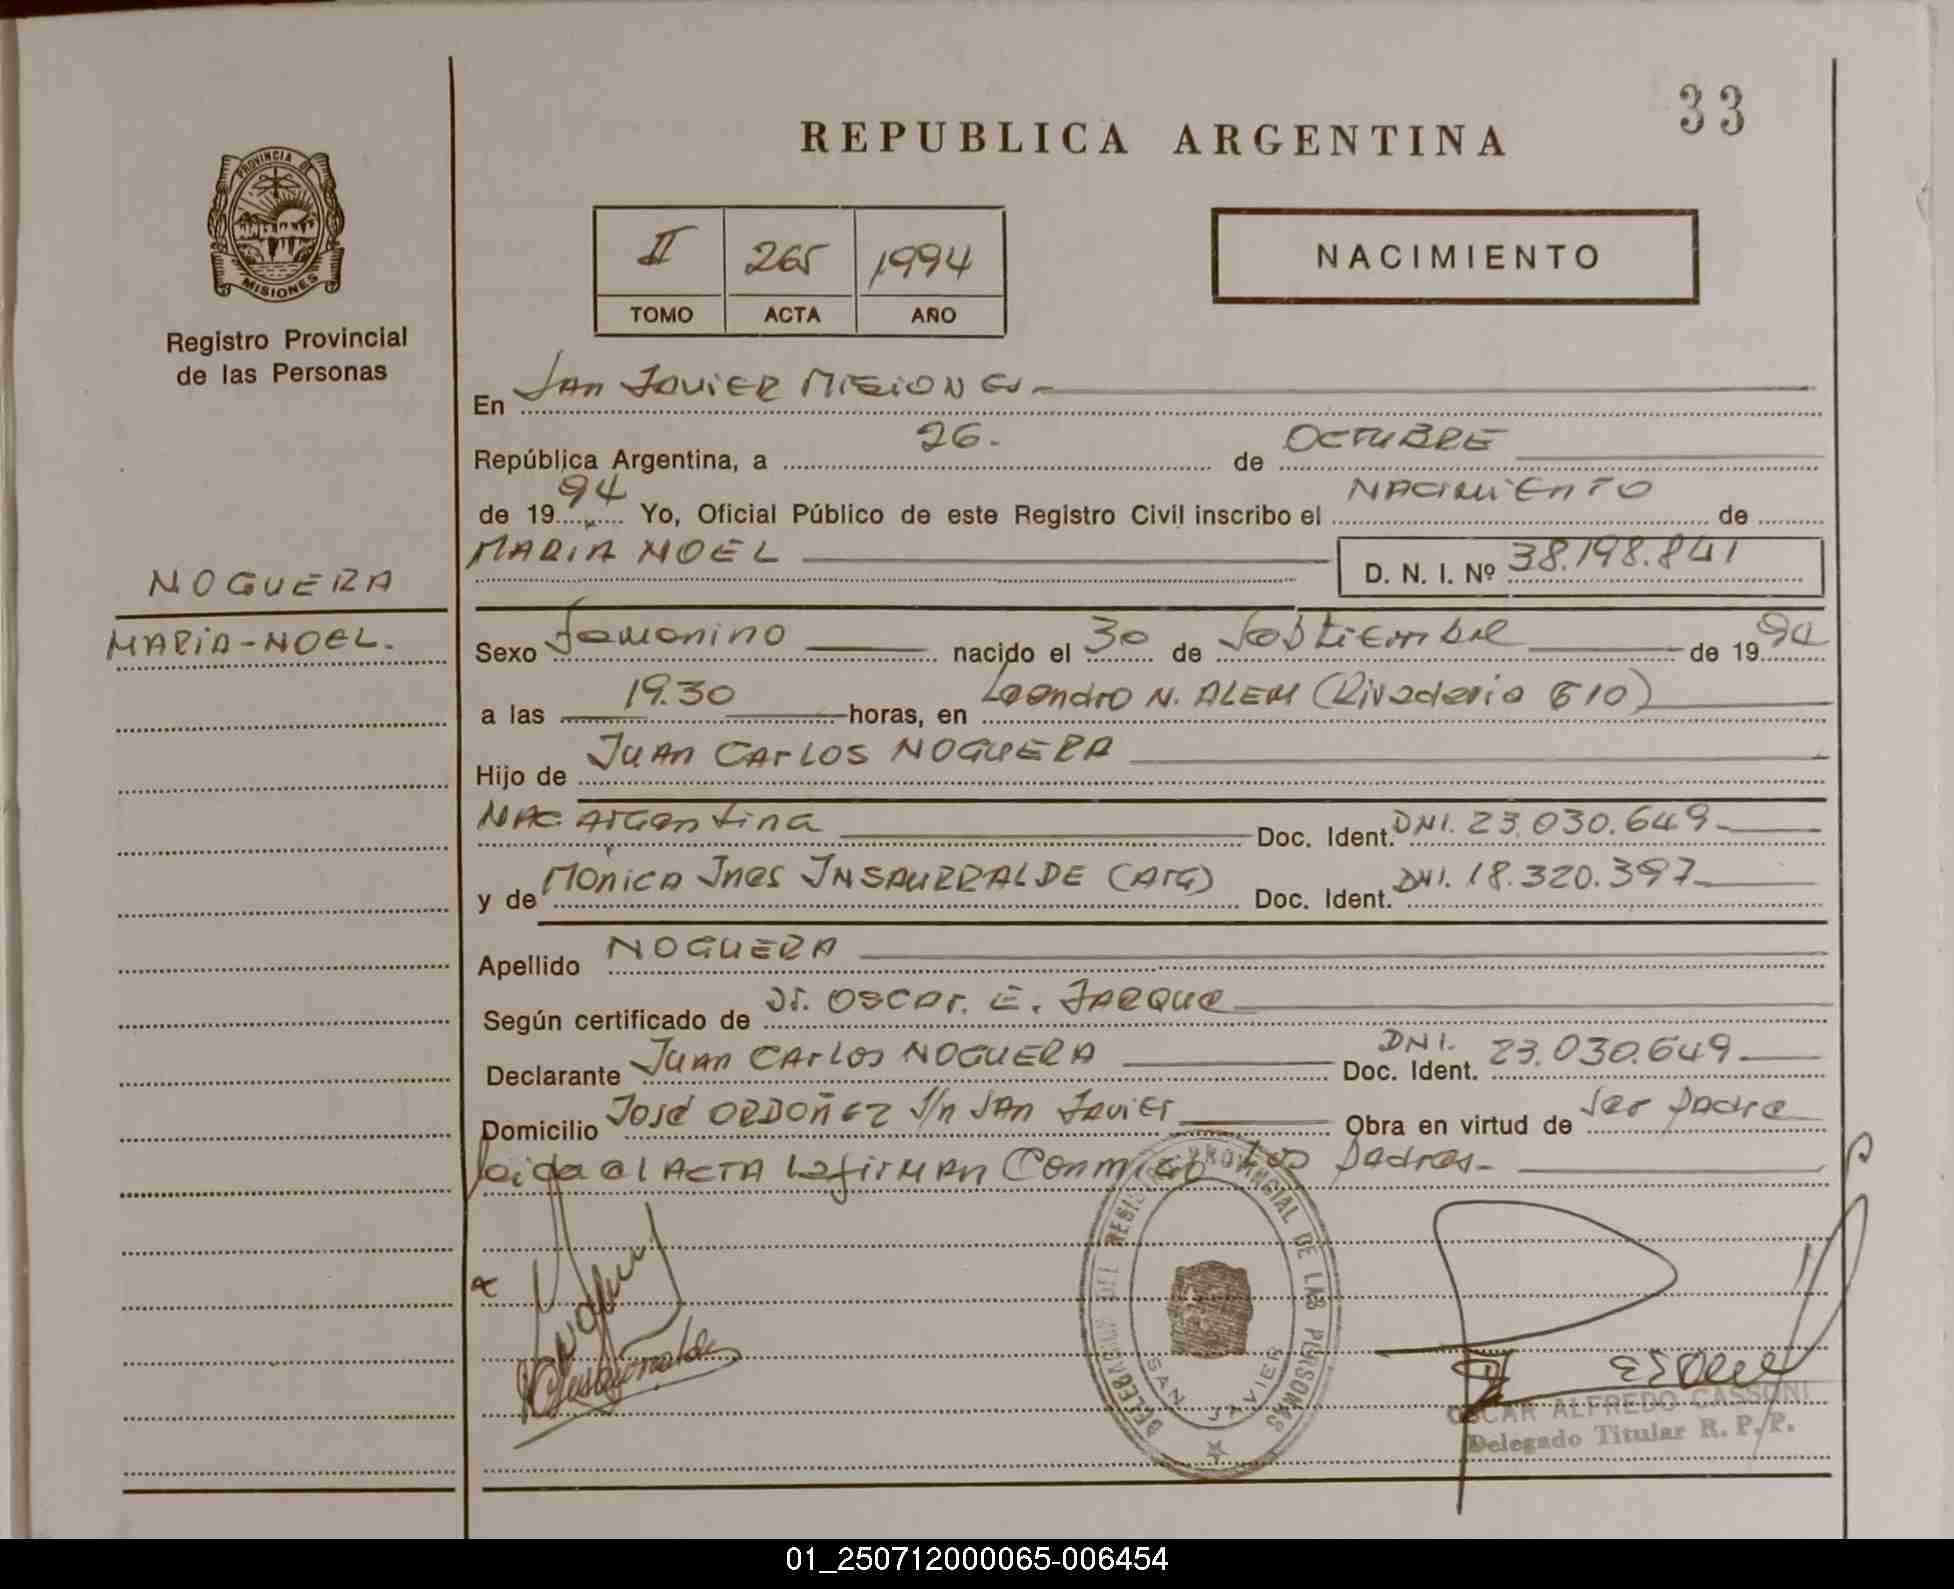 33
REPUBLICA ARGENTINA
PROVINCIA DE
MISIONES
Registro Provincial
de las Personas
II 265 1994
TOMO ACTA AÑO
NACIMIENTO
En San Javier Misiones
República Argentina, a 26. de OCTUBRE
de 1994 Yo, Oficial Público de este Registro Civil inscribo el NACIMIENTO de
MARIA NOEL D. N. I. Nº 38.198.841
NOGUERA
MARIA-NOEL.
Sexo Femenino nacido el 30 de Septiembre de 1994
a las 19.30 horas, en Leandro N. ALEM (Rivadavia 610)
Hijo de Juan Carlos NOGUERA
NAC. Argentina Doc. Ident. DNI. 23.030.649
y de Mónica Ines INSAURRALDE (Arg) Doc. Ident. DNI. 18.320.397
Apellido NOGUERA
Según certificado de Dr. OSCAr. E. JARQUE
Declarante Juan CArLos NOGUERA Doc. Ident. DNI. 23.030.649
Domicilio José ORDOÑEZ S/n San Javier Obra en virtud de Ser Padre
Leida el ACTA La firman Conmigo Los Padres
DELEGACION DEL REGISTRO PROVINCIAL DE LAS PERSONAS
SAN JAVIER
OSCAR ALFREDO CASSONI
Delegado Titular R. P. P.
01_250712000065-006454